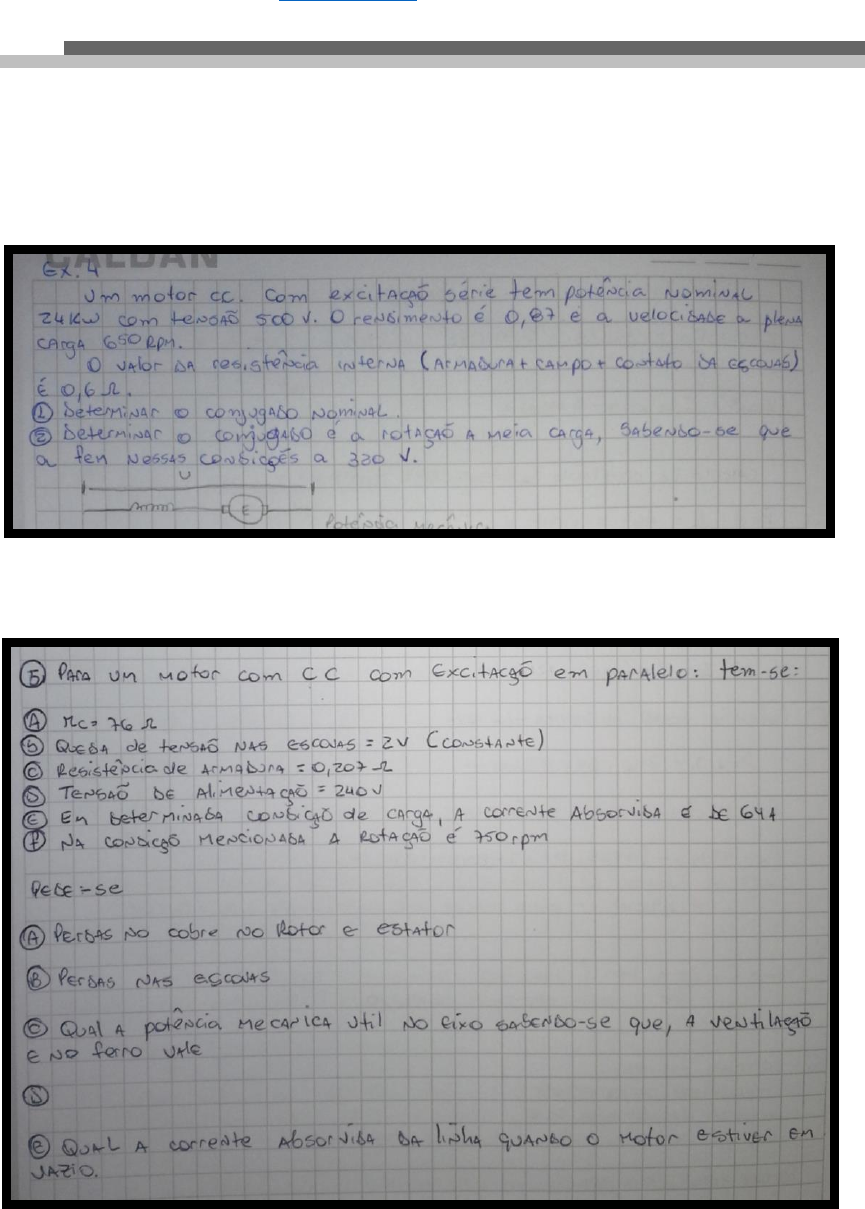 CALDAN
Ex. 4
Um motor cc. Com excitação série tem potência nominal
24Kw com tensão 500 V. O rendimento é 0,87 e a velocidade a plena
carga 650 Rpm.
O valor da resistência interna (Armadura + campo + contato da escovas)
É 0,6 Ω.
① Determinar o conjugado nominal.
② Determinar o conjugado é a rotação a meia carga, sabendo-se que
a fem nessas condições a 320 V.
U
E
Potência mecânica
⑤ Para um motor com CC com Excitação em paralelo: tem-se:
Ⓐ rc= 76 Ω
Ⓑ Queda de tensão nas escovas = 2V (constante)
Ⓒ Resistência de armadura = 0,207 Ω
Ⓓ Tensão de alimentação = 240V
Ⓔ Em determinada condição de carga, a corrente absorvida é de 64A
Ⓕ Na condição mencionada a rotação é 750rpm
Pede-se
Ⓐ Perdas no cobre no Rotor e estator
Ⓑ Perdas nas escovas
Ⓒ Qual a potência mecanica util no eixo sabendo-se que, a ventilação
e no ferro vale
Ⓓ
ⓔ Qual a corrente absorvida da linha quando o motor estiver em
vazio.